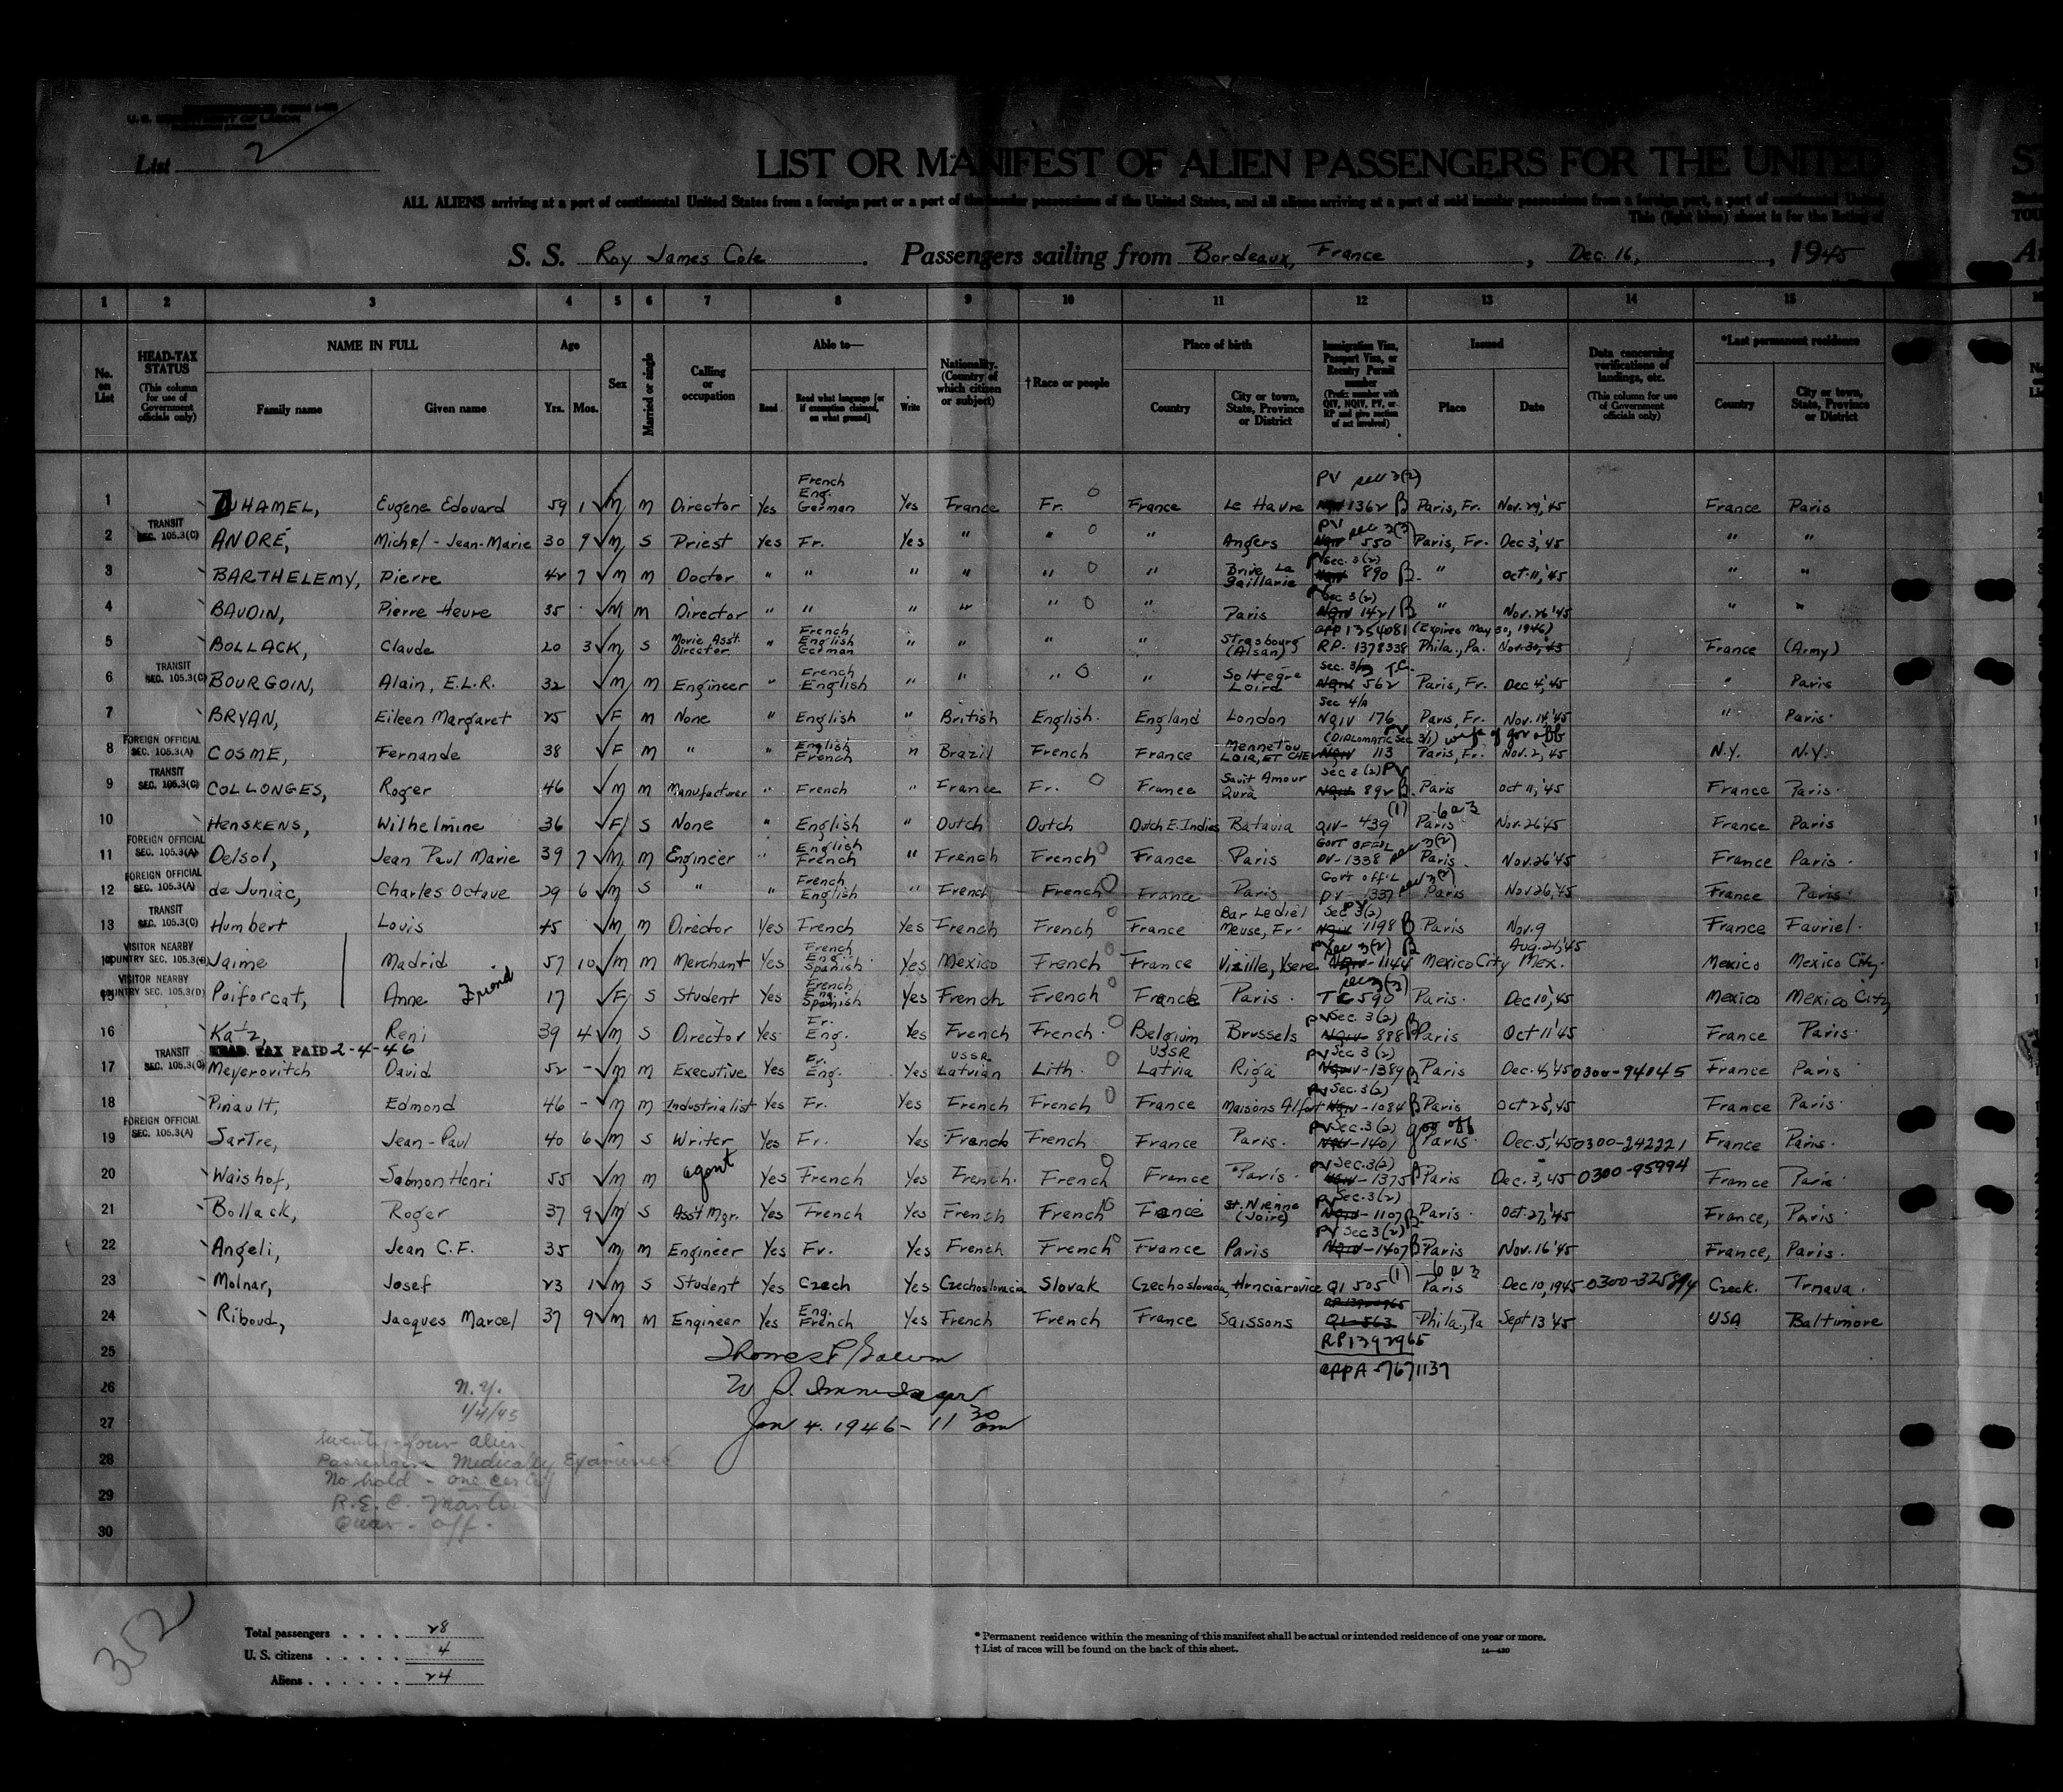 U. S. DEPARTMENT OF LABOR
List 2
LIST OR MANIFEST OF ALIEN PASSENGERS FOR THE UNITED
ALL ALIENS arriving at a port of continental United States from a foreign port or a port of the insular possessions of the United States, and all aliens arriving at a port of said insular possessions from a foreign port, a port of continental United
This (light blue) sheet is for the listing of
S. S. Roy James Cole . Passengers sailing from Bordeaux, France , Dec. 16, , 1945
1 2 3 4 5 6 7 8 9 10 11 12 13 14 15
No. on List
HEAD-TAX STATUS (This column for use of Government officials only)
NAME IN FULL Family name Given name
Age Yrs. Mos.
Sex
Married or single
Calling or occupation
Able to— Read Read what language [or if exemption claimed, on what ground] Write
Nationality. (Country of which citizen or subject)
†Race or people
Place of birth Country City or town, State, Province or District
Immigration Visa, Passport Visa, or Reentry Permit number (Prefix number with QIV, NQIV, PV, or RP and give section of act involved)
Issued Place Date
Data concerning verifications of landings, etc. (This column for use of Government officials only)
*Last permanent residence Country City or town, State, Province or District
1 DUHAMEL, Eugene Edouard 59 1 M M Director Yes French Eng. German Yes France Fr. France Le Havre PV sec 3(2) 1362 B Paris, Fr. Nov. 29, '45 France Paris
2 TRANSIT SEC. 105.3(C) ANDRÉ, Michel - Jean-Marie 30 9 M S Priest Yes Fr. Yes " " " Angers PV sec 3(3) 550 Paris, Fr. Dec 3, '45 " "
3 BARTHELEMY, Pierre 42 7 M M Doctor " " " " " " Brive La Gaillarie PV Sec. 3(2) 890 B " Oct. 11, '45 " "
4 BAUDIN, Pierre Heure 35 M M Director " " " " " " Paris PV Sec 3(2) NQIV 1421 B " Nov. 26 '45 " "
5 BOLLACK, Claude 20 3 M S Movie Asst. Director " French English German " " " " Strasbourg (Alsan) app 1354081 (Expires May 30, 1946) RP- 1378338 Phila., Pa. Nov. 30, 45 France (Army)
6 TRANSIT SEC. 105.3(C) BOURGOIN, Alain, E.L.R. 32 M M Engineer " French English " " " " Loire Sec. T.C. NQIV 562 Paris, Fr. Dec 4, '45 " Paris
7 BRYAN, Eileen Margaret 25 F M None " English " British English. England London Sec 4/A NQIV 176 Paris, Fr. Nov. 14, '45 " Paris
8 FOREIGN OFFICIAL SEC. 105.3(A) COSME, Fernande 38 F M " " English French " Brazil French France Mennetou LOIR, ET CHER (DIPLOMATIC Sec 3/1) wife of gov off PV NQIV 113 Paris, Fr. Nov. 2, '45 N.Y. N.Y.
9 TRANSIT SEC. 105.3(C) COLLONGES, Roger 46 M M Manufacturer " French " France Fr. France Saint Amour Jura Sec 3(2) PV NQIV 892 B. Paris Oct 11, '45 France Paris
10 HENSKENS, Wilhelmine 36 F S None " English " Dutch Dutch Dutch E. Indies Batavia QIV- 439 (1) 6 a 3 Paris Nov. 26 '45 France Paris
11 FOREIGN OFFICIAL SEC. 105.3(A) Delsol, Jean Paul Marie 39 7 M M Engineer " English French " French French France Paris GOVT OFFIL PV-1338 sec 3(2) Paris Nov. 26 '45 France Paris.
12 FOREIGN OFFICIAL SEC. 105.3(A) de Juniac, Charles Octave 29 6 M S " " French English " French French France Paris Govt off'L PV-1337 Paris Nov 26, '45 France Paris
13 TRANSIT SEC. 105.3(C) Humbert Louis 45 M M Director Yes French Yes French French France Bar Lediel Meuse, Fr. Sec 3(2) PV NQIV 1198 B Paris Nov. 9 France Fauriel.
14 VISITOR NEARBY COUNTRY SEC. 105.3(D) Jaime Madrid 57 10 M M Merchant Yes French Eng. Spanish Yes Mexico French France Vizille, Ysere PV sec 3(2) B NQIV-1144 Mexico City Mex. Aug. 21, '45 Mexico Mexico City.
15 VISITOR NEARBY COUNTRY SEC. 105.3(D) Puiforcat, Anne Friend 17 F S Student Yes French Eng. Spanish Yes French French France Paris. sec 3(2) TC 590 Paris. Dec 10, '45 Mexico Mexico City
16 Katz, Reni 39 4 M S Director Yes Fr. Eng. Yes French French. Belgium Brussels PV Sec. 3(2) NQIV 888 B Paris Oct 11 '45 France Paris
HEAD TAX PAID 2-4-46
17 TRANSIT SEC. 105.3(C) Meyerovitch David 52 - M M Executive Yes Fr. Eng. Yes USSR Latvian Lith. USSR Latvia Riga PV Sec 3(2) NQIV-1389 B Paris Dec. 4, '45 0300-94045 France Paris
18 Pinault, Edmond 46 - M M Industrialist Yes Fr. Yes French French France Maisons Alfort PV Sec. 3(2) NQIV-1084 B Paris Oct 25, 45 France Paris.
19 FOREIGN OFFICIAL SEC. 105.3(A) Sartre, Jean-Paul 40 6 M S Writer Yes Fr. Yes French French France Paris. PV Sec. 3(2) gov off NQIV-1401 Paris. Dec. 5, '45 0300-242221 France Paris.
20 Waishof, Salmon Henri 55 M M agent Yes French Yes French. French France Paris. PV Sec. 3(2) NQIV-1375 B Paris Dec. 3, 45 0300-95994 France Paris
21 Bollack, Roger 37 9 M S Ass't Mgr. Yes French Yes French French France St. Nienne (Joire) PV Sec. 3(2) NQIV-1107 B Paris Oct. 27, '45 France, Paris.
22 Angeli, Jean C.F. 35 M M Engineer Yes Fr. Yes French French France Paris PV Sec 3(2) NQIV-1407 B Paris Nov. 16 '45 France, Paris.
23 Molnar, Josef 23 1 M S Student Yes Czech Yes Czechoslovacia Slovak Czechoslovacia, Hrnciarovice QI 505 (1) 6 a 3 Paris Dec 10, 1945 0300-325894 Czeck. Trnava.
24 Riboud, Jacques Marcel 37 9 M M Engineer Yes Eng. French Yes French French France Saissons QI-563 Phila., Pa Sept 13 '45 USA Baltimore
25 RP1392965
26 APP A-7671137
27 Jan 4. 1946 - 11 30 am
28
29
30
N.Y.
1/4/45
twenty-four alien
Passengers Medically Examined
No hold - one
R.E.C. Martin
Quar. off.
352
Total passengers . . . . 28
U. S. citizens . . . . . 4
Aliens . . . . . . 24
* Permanent residence within the meaning of this manifest shall be actual or intended residence of one year or more.
† List of races will be found on the back of this sheet.
14—430